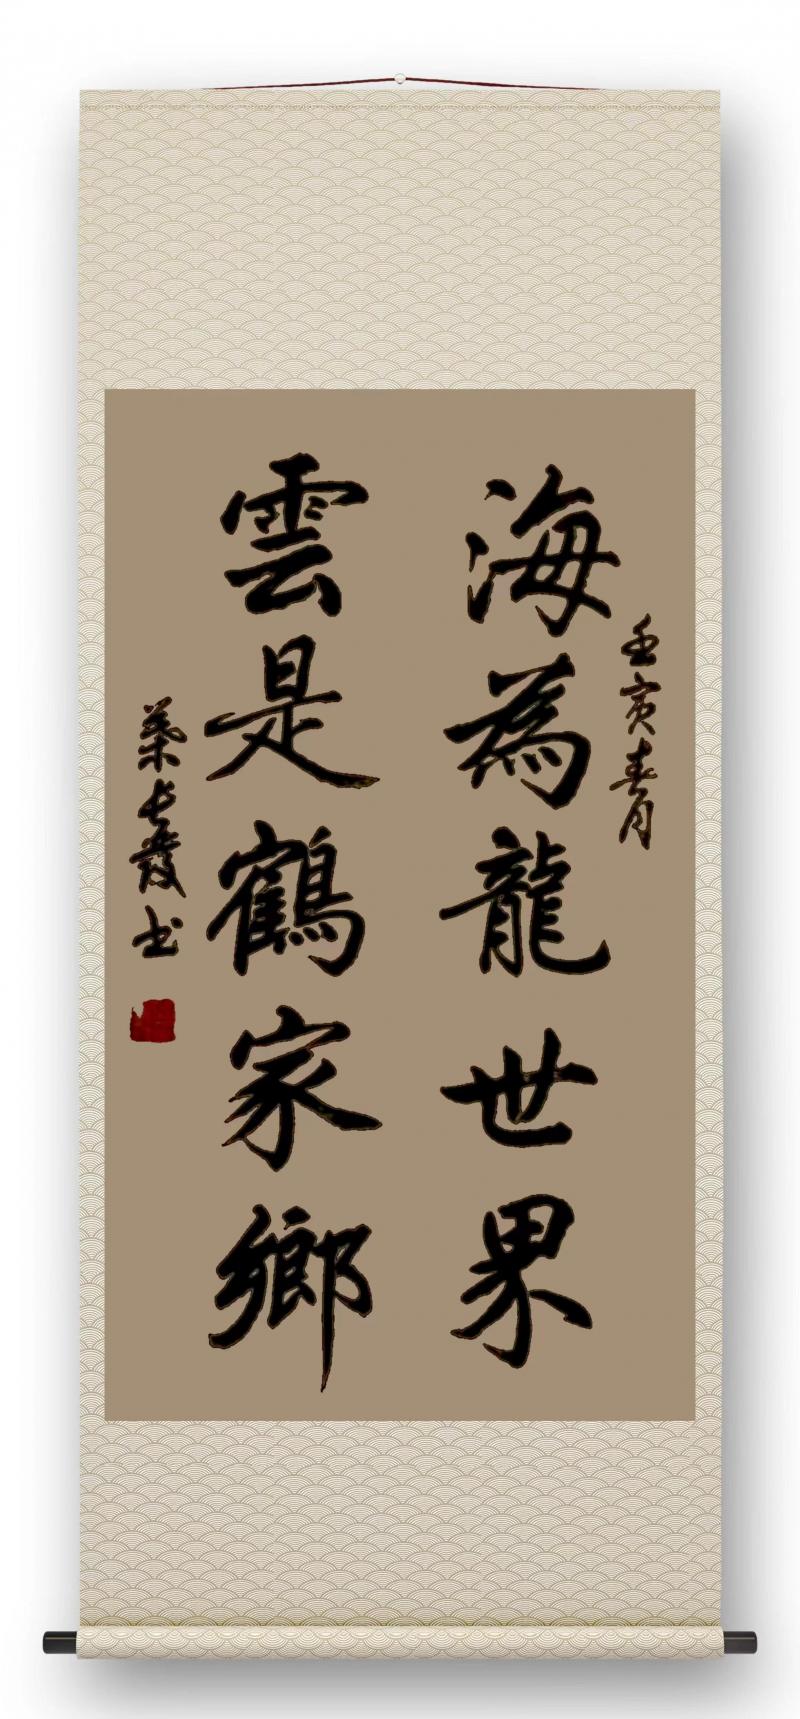 壬寅春月
海為龍世界
雲是鶴家鄉
葉長發书